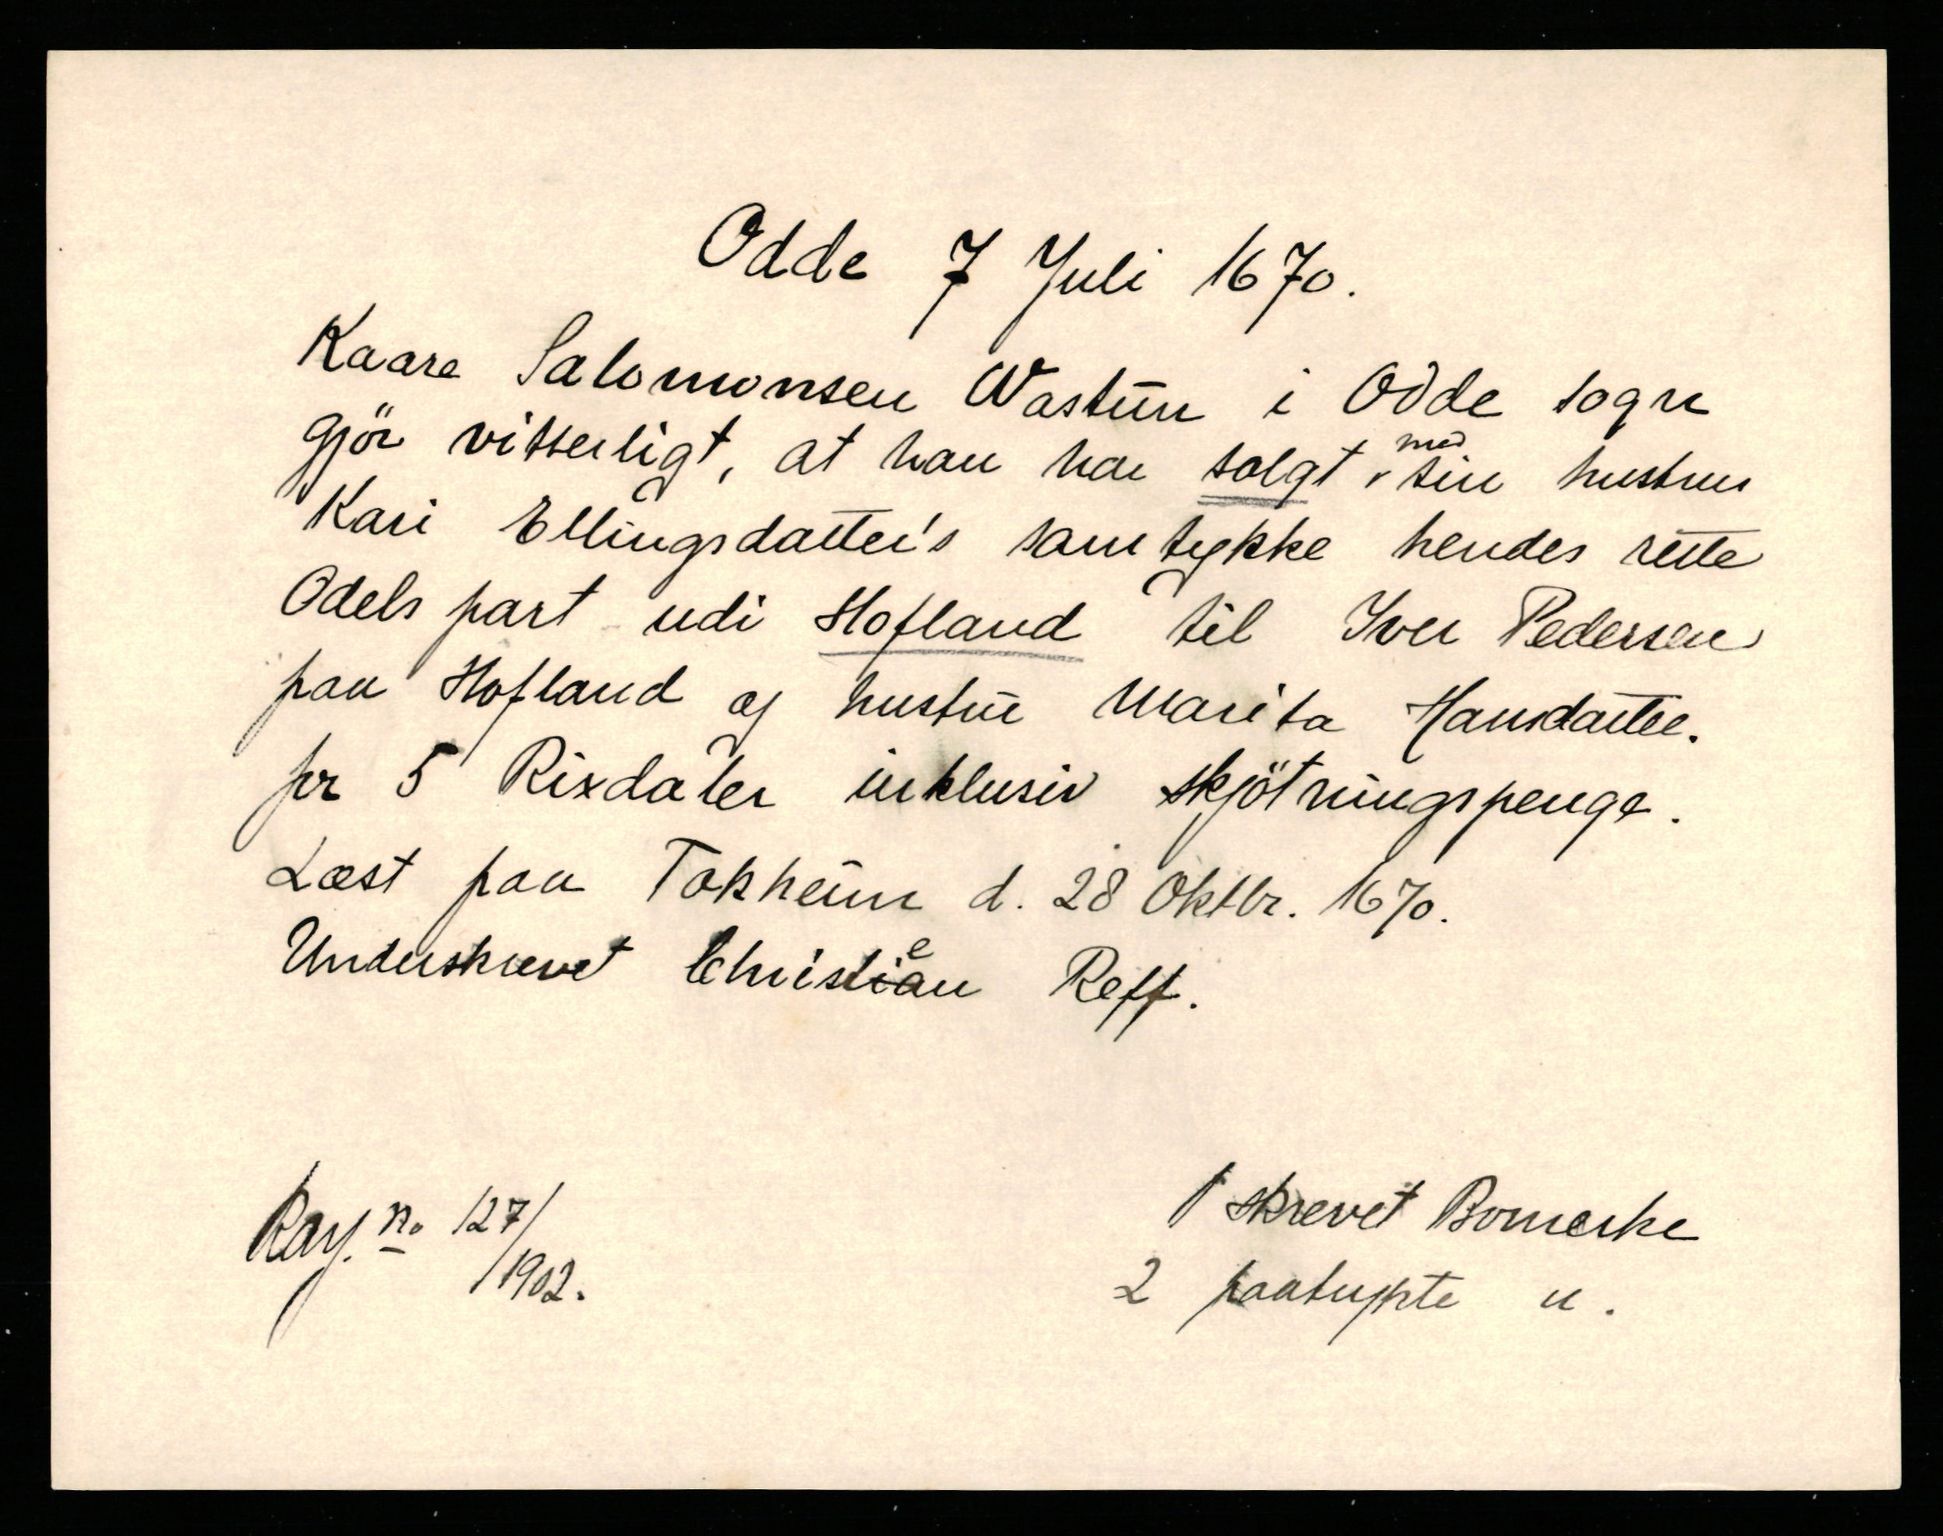 Odde 7 Juli 1670.
Kaare Salomonsen Wastun i Odde sogn
gjör vitterligt, at han har solgt med sin hustru
Kari Ellingsdatter's samtykke hendes rette
Odels part udi Hofland til Iver Pedersen
paa Hofland og hustru Marita Hansdatter.
for 5 Rixdaler inklusiv skjötningspenge.
Læst paa Tokheim d. 28 Oktbr. 1670.
Underskrevet Christen Reff.
1 skrevet Bomerke
Ray. no 127/1902.
2 paatrykte